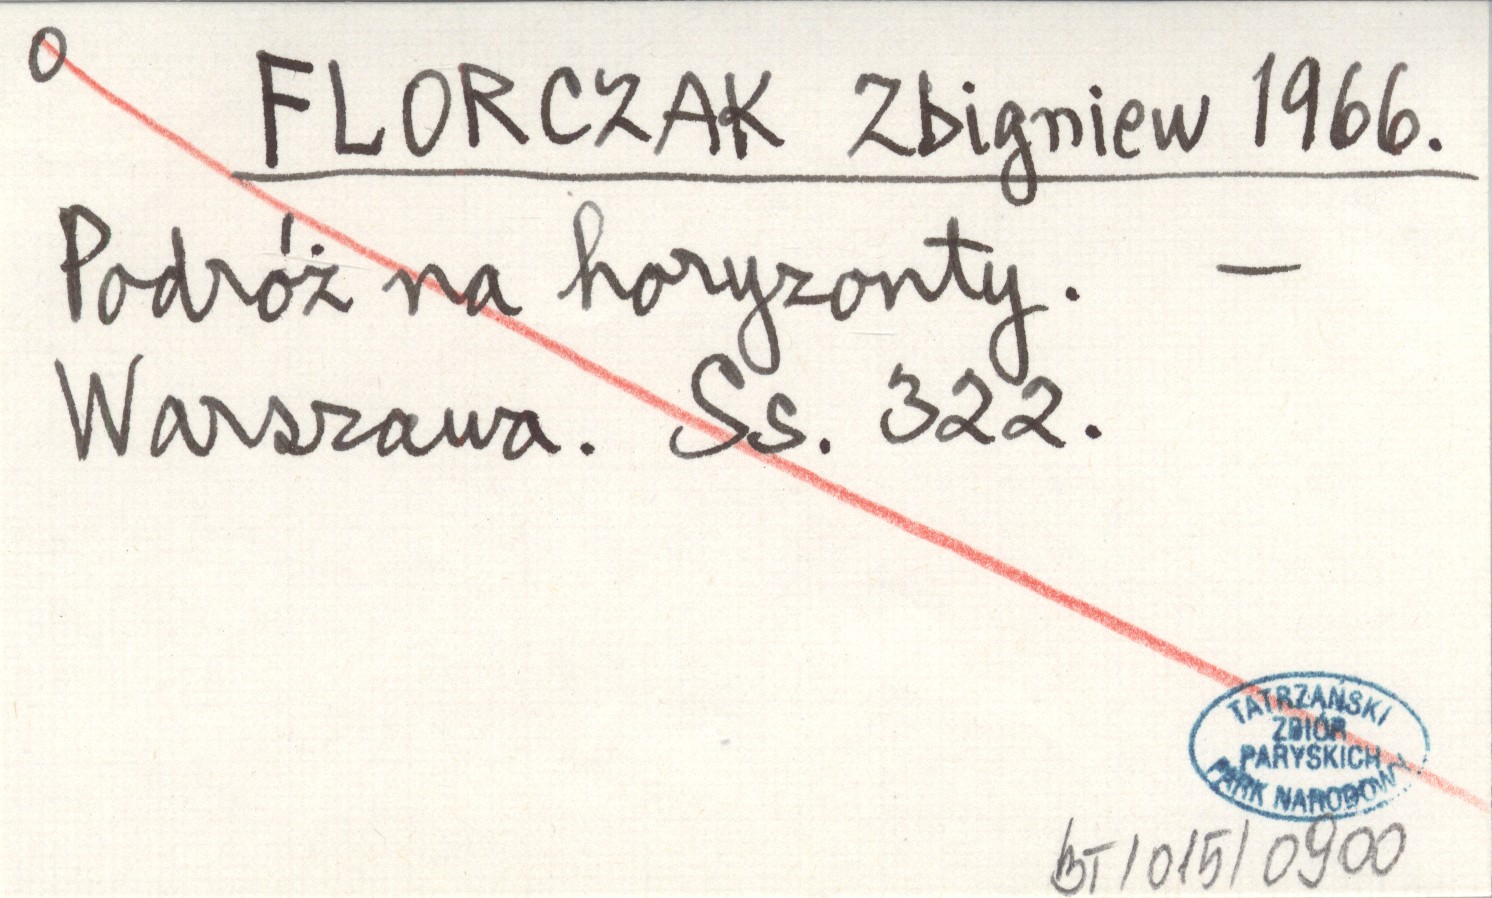 O FLORCZAK Zbigniew 1966.
Podróż na horyzonty. —
Warszawa. Ss. 322.
TATRZAŃSKI
ZBIÓR
PARYSKICH
PARK NARODOWY
BT/015/0900